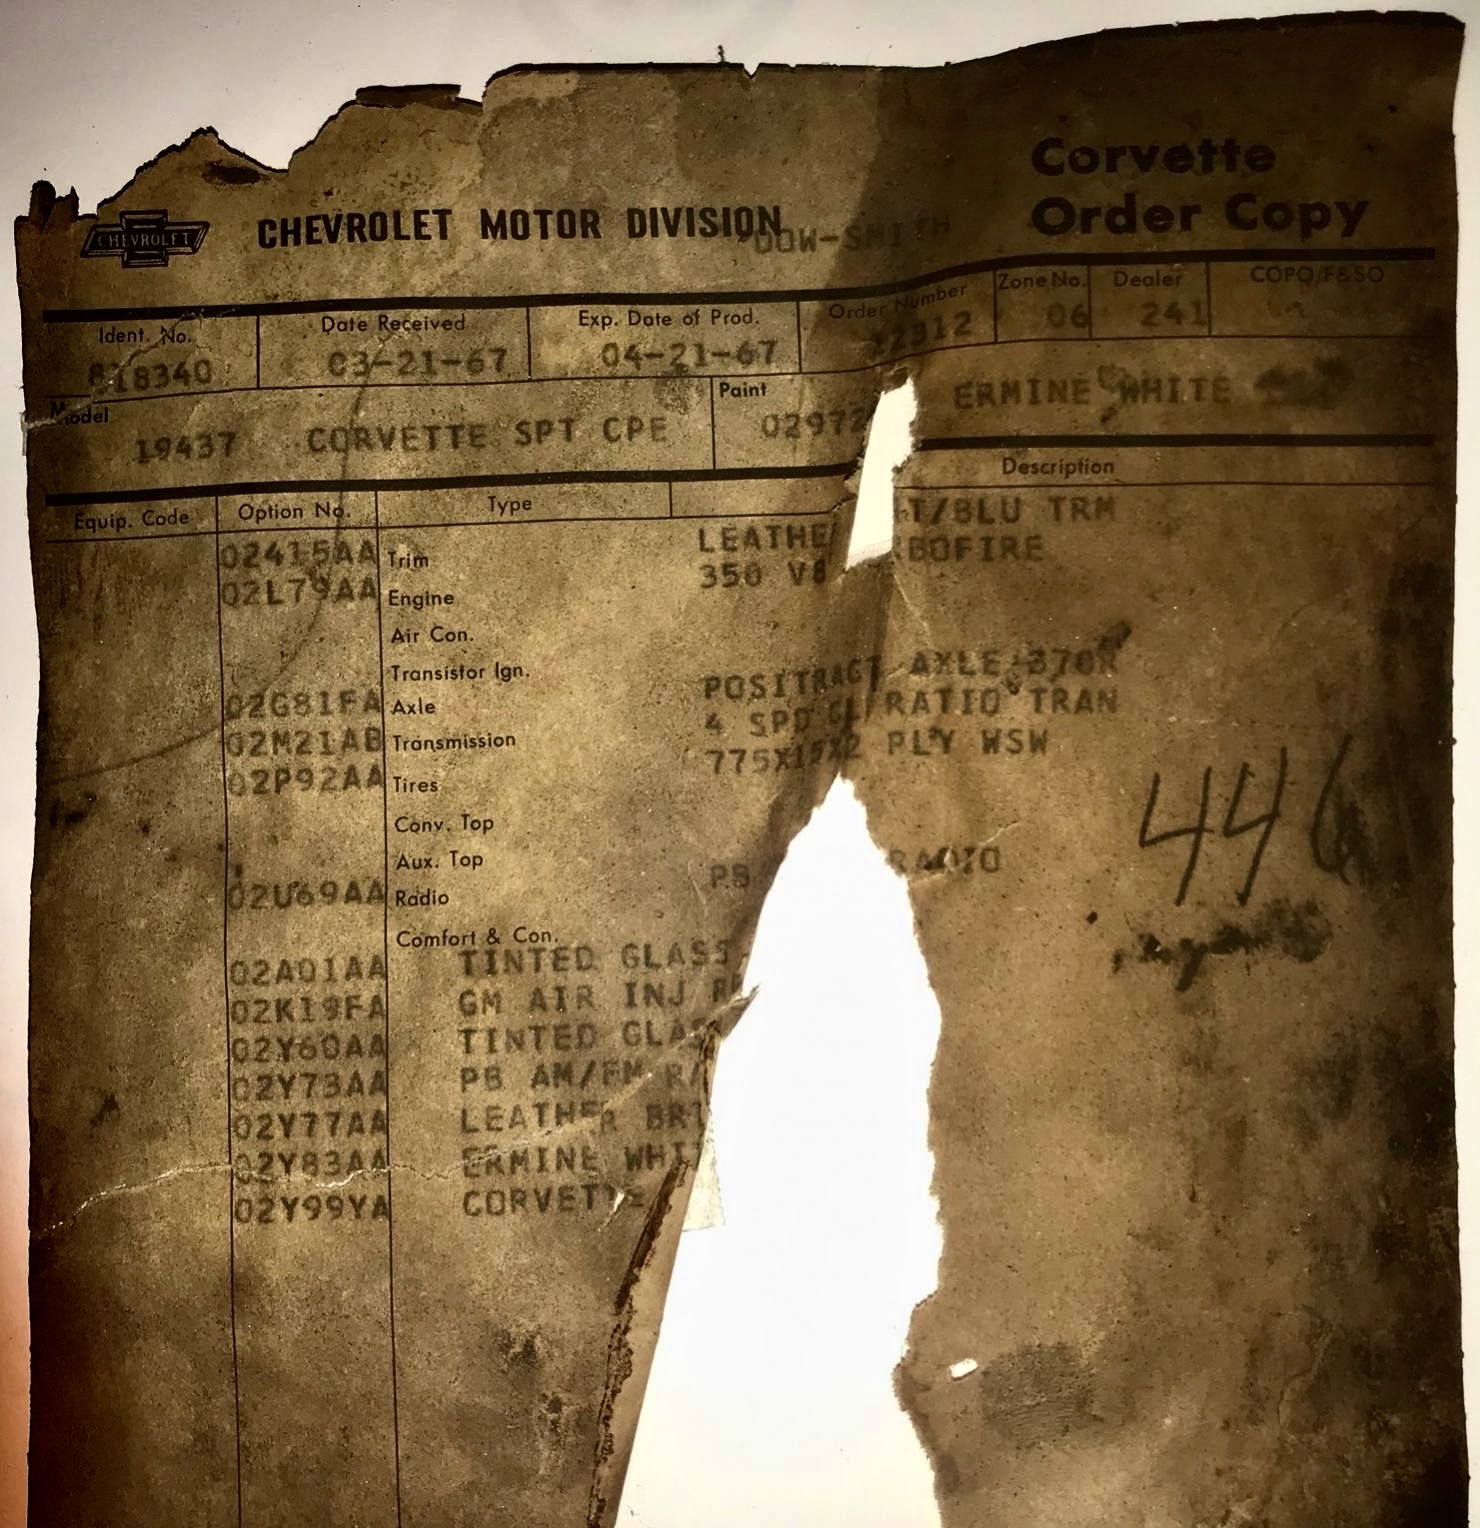 Corvette
Order Copy
CHEVROLET
CHEVROLET MOTOR DIVISION
DOW-SMITH
Ident. No. Date Received Exp. Date of Prod. Order Number Zone No. Dealer COPO/F&SO
818340 03-21-67 04-21-67 12312 06 241
Model Paint
19437 CORVETTE SPT CPE 02972 ERMINE WHITE
Equip. Code Option No. Type Description
02415AA Trim LEATHE T/BLU TRM
02L79AA Engine 350 V8 RBOFIRE
Air Con.
Transistor Ign.
02G81FA Axle POSITRACT AXLE 370R
02M21AB Transmission 4 SPD CL RATIO TRAN
02P92AA Tires 775X15X2 PLY WSW
Conv. Top
Aux. Top
02U69AA Radio PB RADIO
Comfort & Con.
02A01AA TINTED GLASS
02K19FA GM AIR INJ R
02Y60AA TINTED GLAS
02Y73AA PB AM/FM R
02Y77AA LEATHER BRT
02Y83AA ERMINE WHI
02Y99YA CORVETTE
446